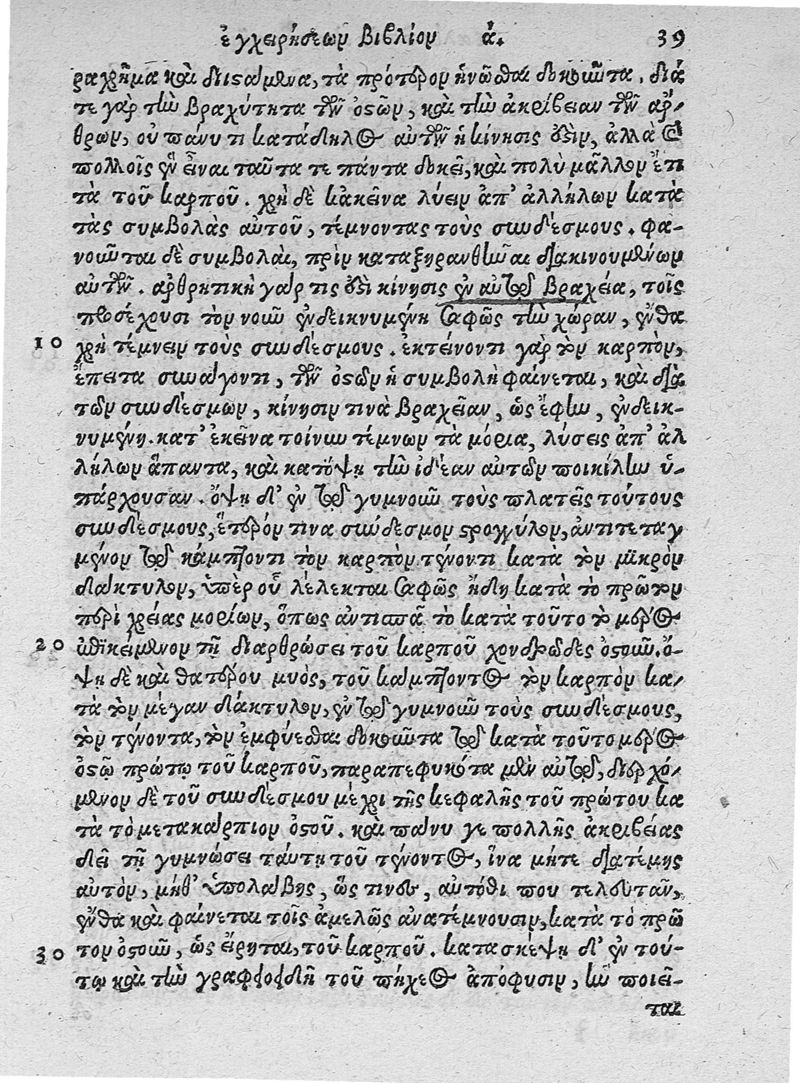 ἐγχειρήσεωρ Βιβλίον ά. 39
ραχρῆμα καὶ διϊσάμενα, τὰ πρότερον ἡνῶσθαι δοκοῦντα. διά
τε γὰρ τὴν βραχύτητα τῶν ὀστῶν, καὶ τὴν ἀκρίβειαν τῶν ἄρ-
θρων, οὐ πάνυ τι κατάδηλος αὐτῶν ἡ κίνησις ἐστὶν, ἀλλὰ καὶ
πολλοῖς ἓν εἶναι ταῦτα τε πάντα δοκεῖ, καὶ πολὺ μᾶλλον ἔτι
τὰ τοῦ καρποῦ. χρὴ δὲ κἀκεῖνα λύειν ἀπ' ἀλλήλων κατὰ
τὰς συμβολὰς αὐτοῦ, τέμνοντας τοὺς συνδέσμους. φαί-
νονται δὲ συμβολαὶ, πρὶν καταξηρανθῆναι διακινουμένων
αὐτῶν. ἀρθρητικὴ γάρ τις ἐστὶ κίνησις ἐν αὐτοῖς βραχεῖα, τοῖς
προσέχουσι τὸν νοῦν ἐνδεικνυμένη σαφῶς τὴν χώραν, ἔνθα
10 χρὴ τέμνειν τοὺς συνδέσμους. ἐκτείνοντι γὰρ τὸν καρπὸν,
ἔπειτα συνάγοντι, τῶν ὀστῶν ἡ συμβολὴ φαίνεται, καὶ διὰ
τῶν συνδέσμων, κίνησιν τινὰ βραχεῖαν, ὡς ἔφην, ἐνδεικ-
νυμένη. κατ' ἐκεῖνα τοίνυν τέμνων τὰ μόρια, λύσεις ἀπ' ἀλ
λήλων ἅπαντα, καὶ κατόψῃ τὴν ἰδέαν αὐτῶν ποικίλην ὑ-
πάρχουσαν. ὄψῃ δ' ἐν τῷ γυμνοῦν τοὺς πλατεῖς τούτους
συνδέσμους, ἕτερόν τινα σύνδεσμον στρογγύλον, ἀντιτεταγ
μένον τῷ κάμπτοντι τὸν καρπὸν τένοντι κατὰ τὸν μικρὸν
δάκτυλον, ὑπὲρ οὗ λέλεκται σαφῶς ἤδη κατὰ τὸ πρῶτον
περὶ χρείας μορίων, ὅπως ἀντισπᾷ τὸ κατὰ τοῦτο τὸ μέρος
20 ἐπικείμενον τῇ διαρθρώσει τοῦ καρποῦ χονδρῶδες ὀστοῦν. ὄ-
ψῃ δὲ καὶ θατέρου μυὸς, τοῦ κάμπτοντος τὸν καρπὸν κα-
τὰ τὸν μέγαν δάκτυλον, ἐν τῷ γυμνοῦν τοὺς συνδέσμους,
τὸν τένοντα, τὸν ἐμφύεσθαι δοκοῦντα τῷ κατὰ τοῦτο μέρος
ὀστῷ πρώτῳ τοῦ καρποῦ, παραπεφυκότα μὲν αὐτῷ, διερχό-
μενον δὲ τοῦ συνδέσμου μέχρι τῆς κεφαλῆς τοῦ πρώτου κα
τὰ τὸ μετακάρπιον ὀστοῦ. καὶ πάνυ γε πολλῆς ἀκριβείας
δεῖ τῇ γυμνώσει ταύτῃ τοῦ τένοντος, ἵνα μήτε διατέμῃς
αὐτὸν, μήθ' ὑπολάβῃς, ὥς τινες, αὐτόθι που τελευτᾶν,
ἔνθα καὶ φαίνεται τοῖς ἀμελῶς ἀνατέμνουσιν, κατὰ τὸ πρῶ
30 τον ὀστοῦν, ὡς εἴρηται, τοῦ καρποῦ. κατασκέψῃ δ' ἐν τού-
τῳ καὶ τὴν γραφοειδῆ τοῦ πήχεος ἀπόφυσιν, ἣν ποιεῖ-
ται